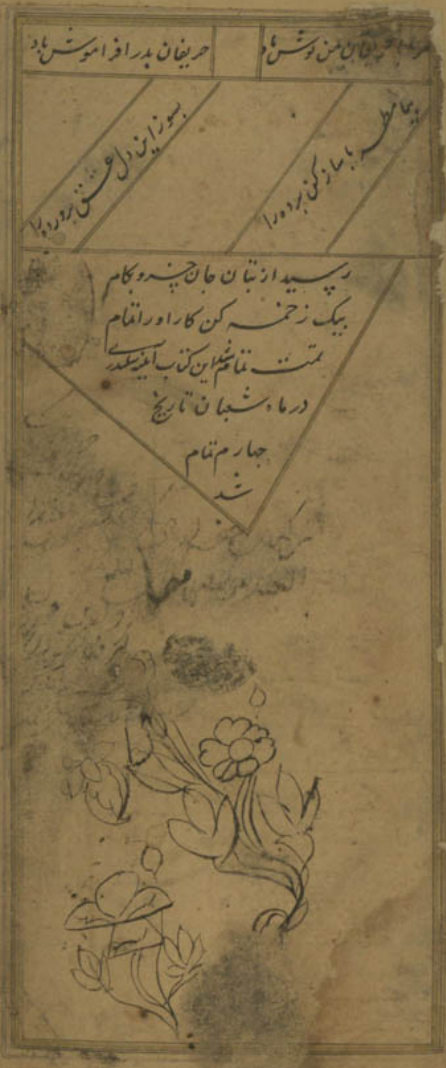 مرا با حریفان من نوش باد حریفان بد را فراموش باد
بیا مطرب با ساز کن پرده را
بسوز این دل عشق پرورده را
رسید از بتان جان خسرو بکام
بیک زخمه کن کار او را تمام
تمت تمام شد این کتاب آینه سکندری
در ماه شعبان تاریخ
جهارم تمام
شد